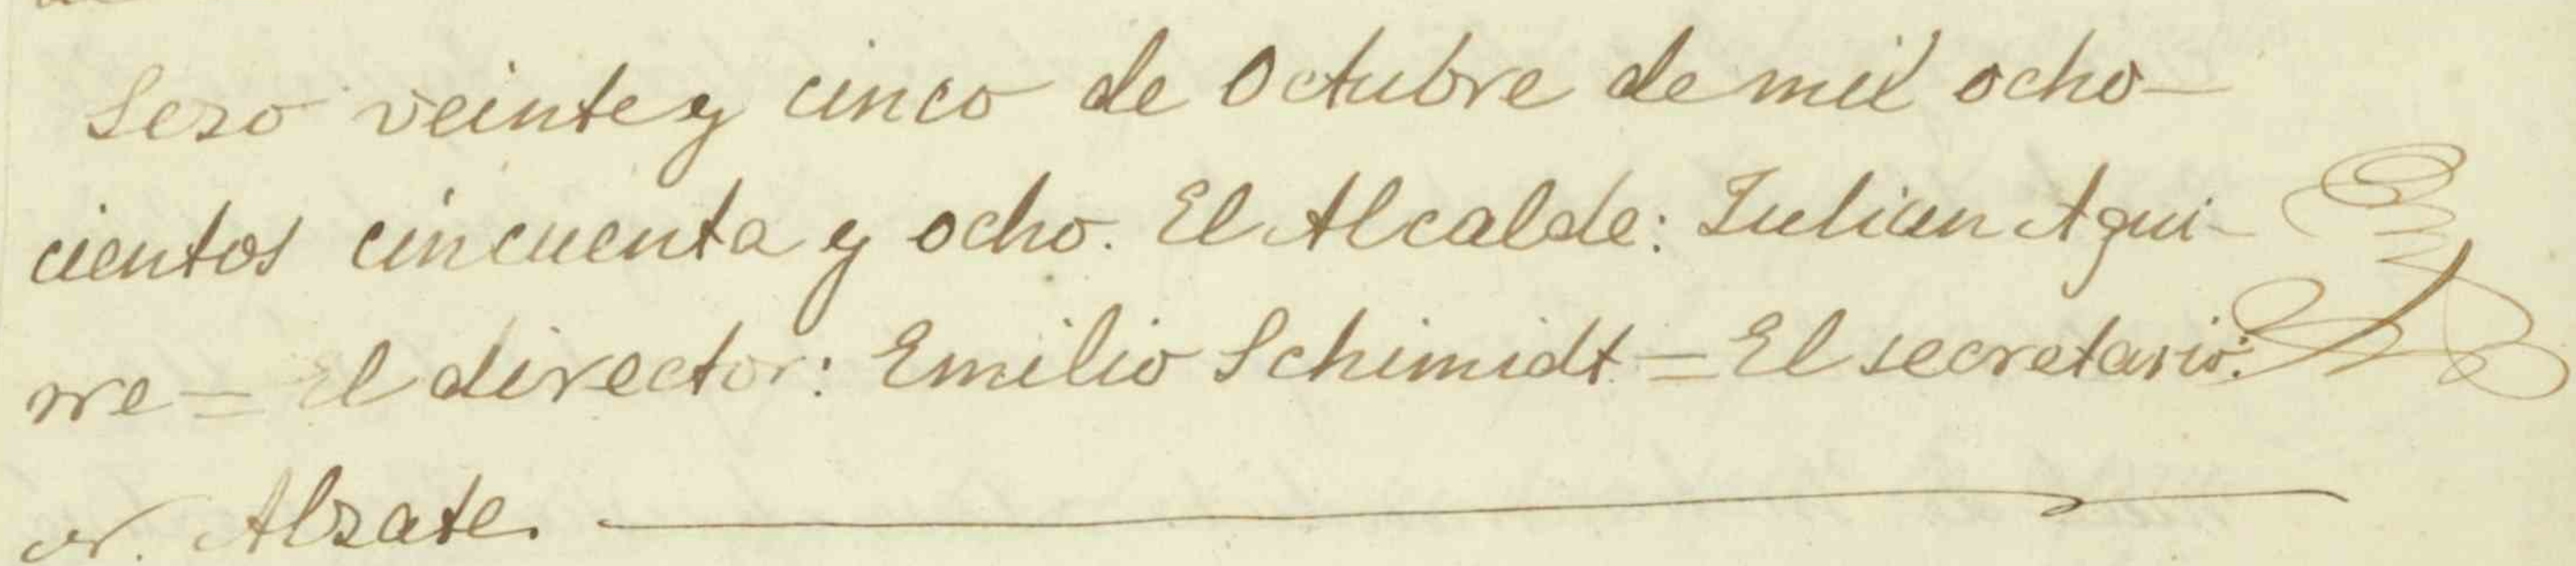 Lezo veinte y cinco de Octubre de mil ocho-
cientos cincuenta y ocho. El Alcalde: Julian Agui-
rre = El director: Emilio Schimidt = El secretario:
N. Alzate.